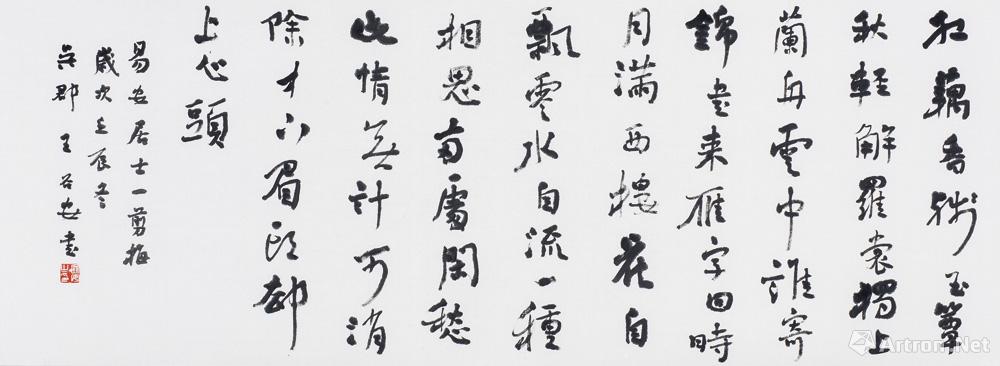 红藕香残玉簟
秋轻解罗裳独上
蘭舟雲中誰寄
錦書来雁字回時
月满西楼花自
飘零水自流一種
相思两處閑愁
此情無計可消
除才下眉头却
上心頭
易安居士一剪梅
歲次壬辰冬
吴郡王谷安書
Artron.Net